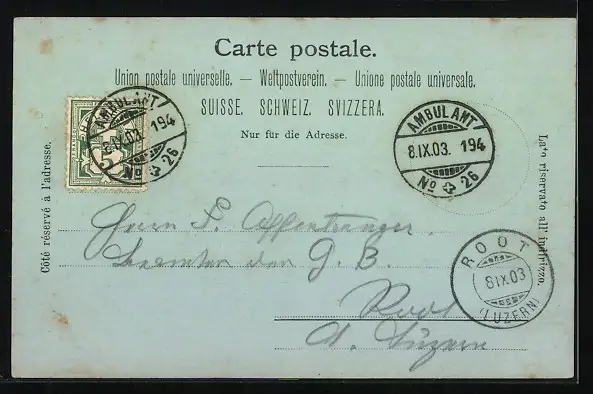 Carte postale.
Union postale universelle. — Weltpostverein. — Unione postale universale.
SUISSE. SCHWEIZ. SVIZZERA.
Nur für die Adresse.
Côté réservé à l'adresse.
Lato riservato all' indirizzo.
5
AMBULANT
8.IX.03. 194
No 26
AMBULANT
8.IX.03. 194
No 26
Herrn
der G. B.
Root
Luzern
ROOT
8 IX 03
(LUZERN)